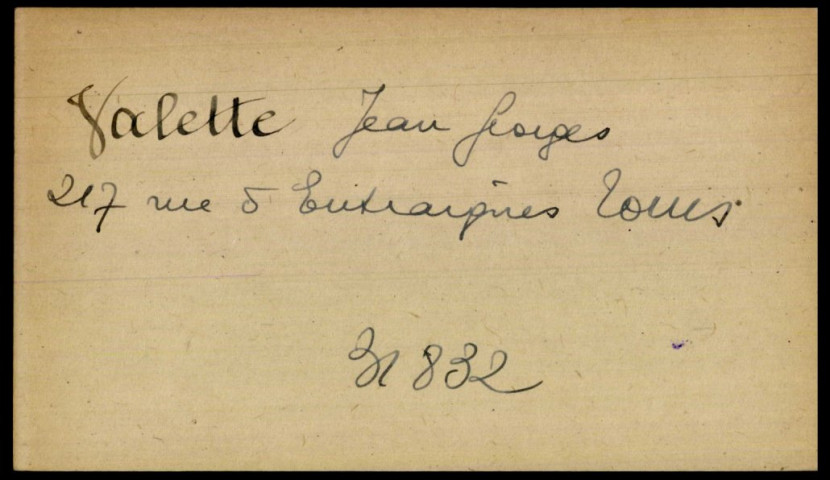 Valette Jean Georges
217 rue d Entraigues Tours
31 832